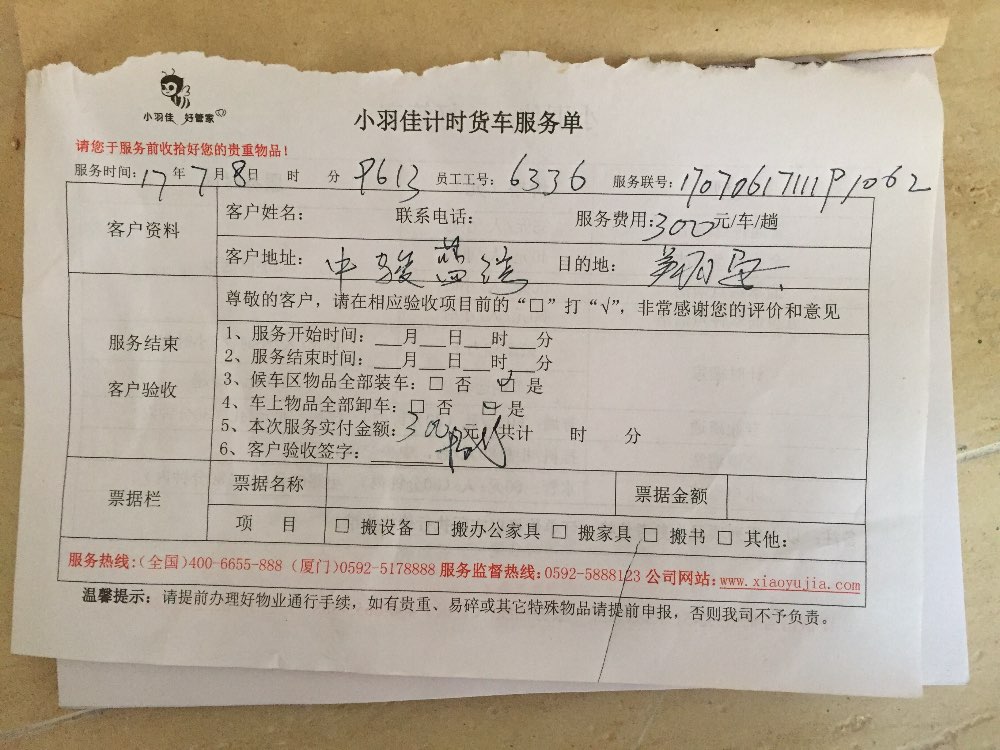 小羽佳 好管家
小羽佳计时货车服务单
请您于服务前收拾好您的贵重物品！
服务时间：17年7月8日 时 分 9613 员工工号：6336 服务联号：
客户资料
客户姓名： 联系电话： 服务费用：300元/车/趟
客户地址：中骏蓝湾 目的地：翔安
服务结束
客户验收
尊敬的客户，请在相应验收项目前的“□”打“√”，非常感谢您的评价和意见
1、服务开始时间：___月___日___时___分
2、服务结束时间：___月___日___时___分
3、候车区物品全部装车：□ 否 ☑ 是
4、车上物品全部卸车：□ 否 ☑ 是
5、本次服务实付金额：300元 共计 时 分
6、客户验收签字：
票据栏
票据名称 票据金额
项 目 □ 搬设备 □ 搬办公家具 □ 搬家具 □ 搬书 □ 其他：
服务热线：（全国）400-6655-888（厦门）0592-5178888 服务监督热线：0592-5888123 公司网站：www.xiaoyujia.com
温馨提示：请提前办理好物业通行手续，如有贵重、易碎或其它特殊物品请提前申报，否则我司不予负责。